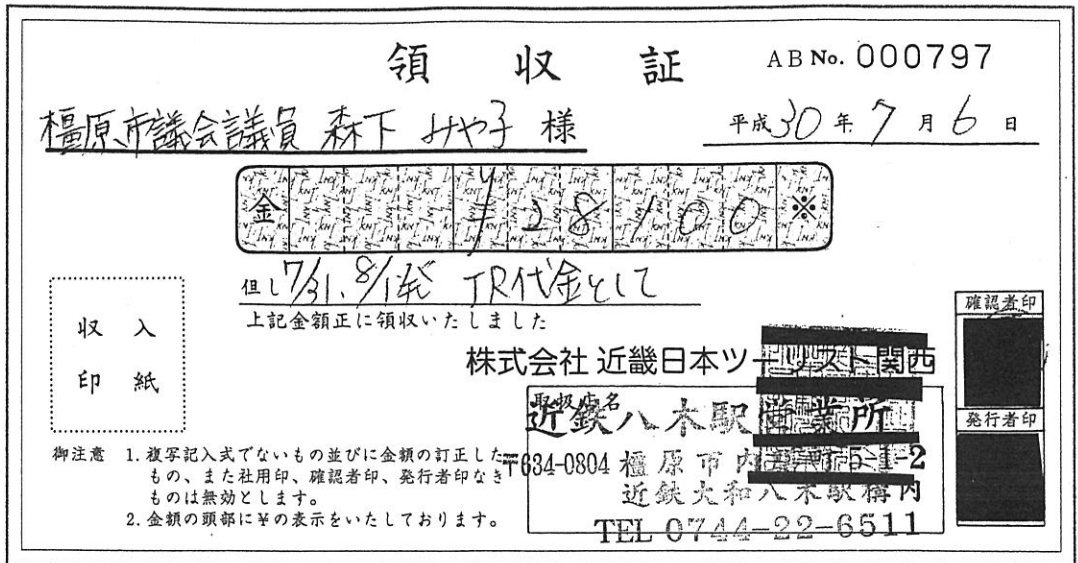 領収証
AB No. 000797
橿原市議会議員 森下 みや子 様
平成30年7月6日
金 ¥28100※
但し 7/31、8/1 JR代金として
上記金額正に領収いたしました
収入
印紙
確認者印
株式会社 近畿日本ツーリスト関西
取扱店名
近鉄八木駅営業所
発行者印
〒634-0804 橿原市内膳町5-1-2
近鉄大和八木駅構内
TEL 0744-22-6511
御注意 1. 複写記入式でないもの並びに金額の訂正した
もの、また社用印、確認者印、発行者印なき
ものは無効とします。
2. 金額の頭部に¥の表示をいたしております。